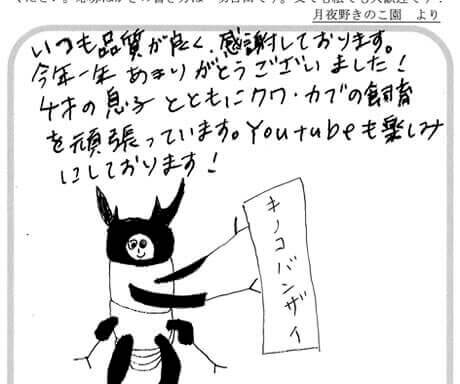 月夜野きのこ園 より
いつも品質が良く、感謝しております。
今年一年 ありがとうございました!
4才の息子とともにクワ・カブの飼育
を頑張っています。Youtubeも楽しみ
にしております!
キノコバンザイ